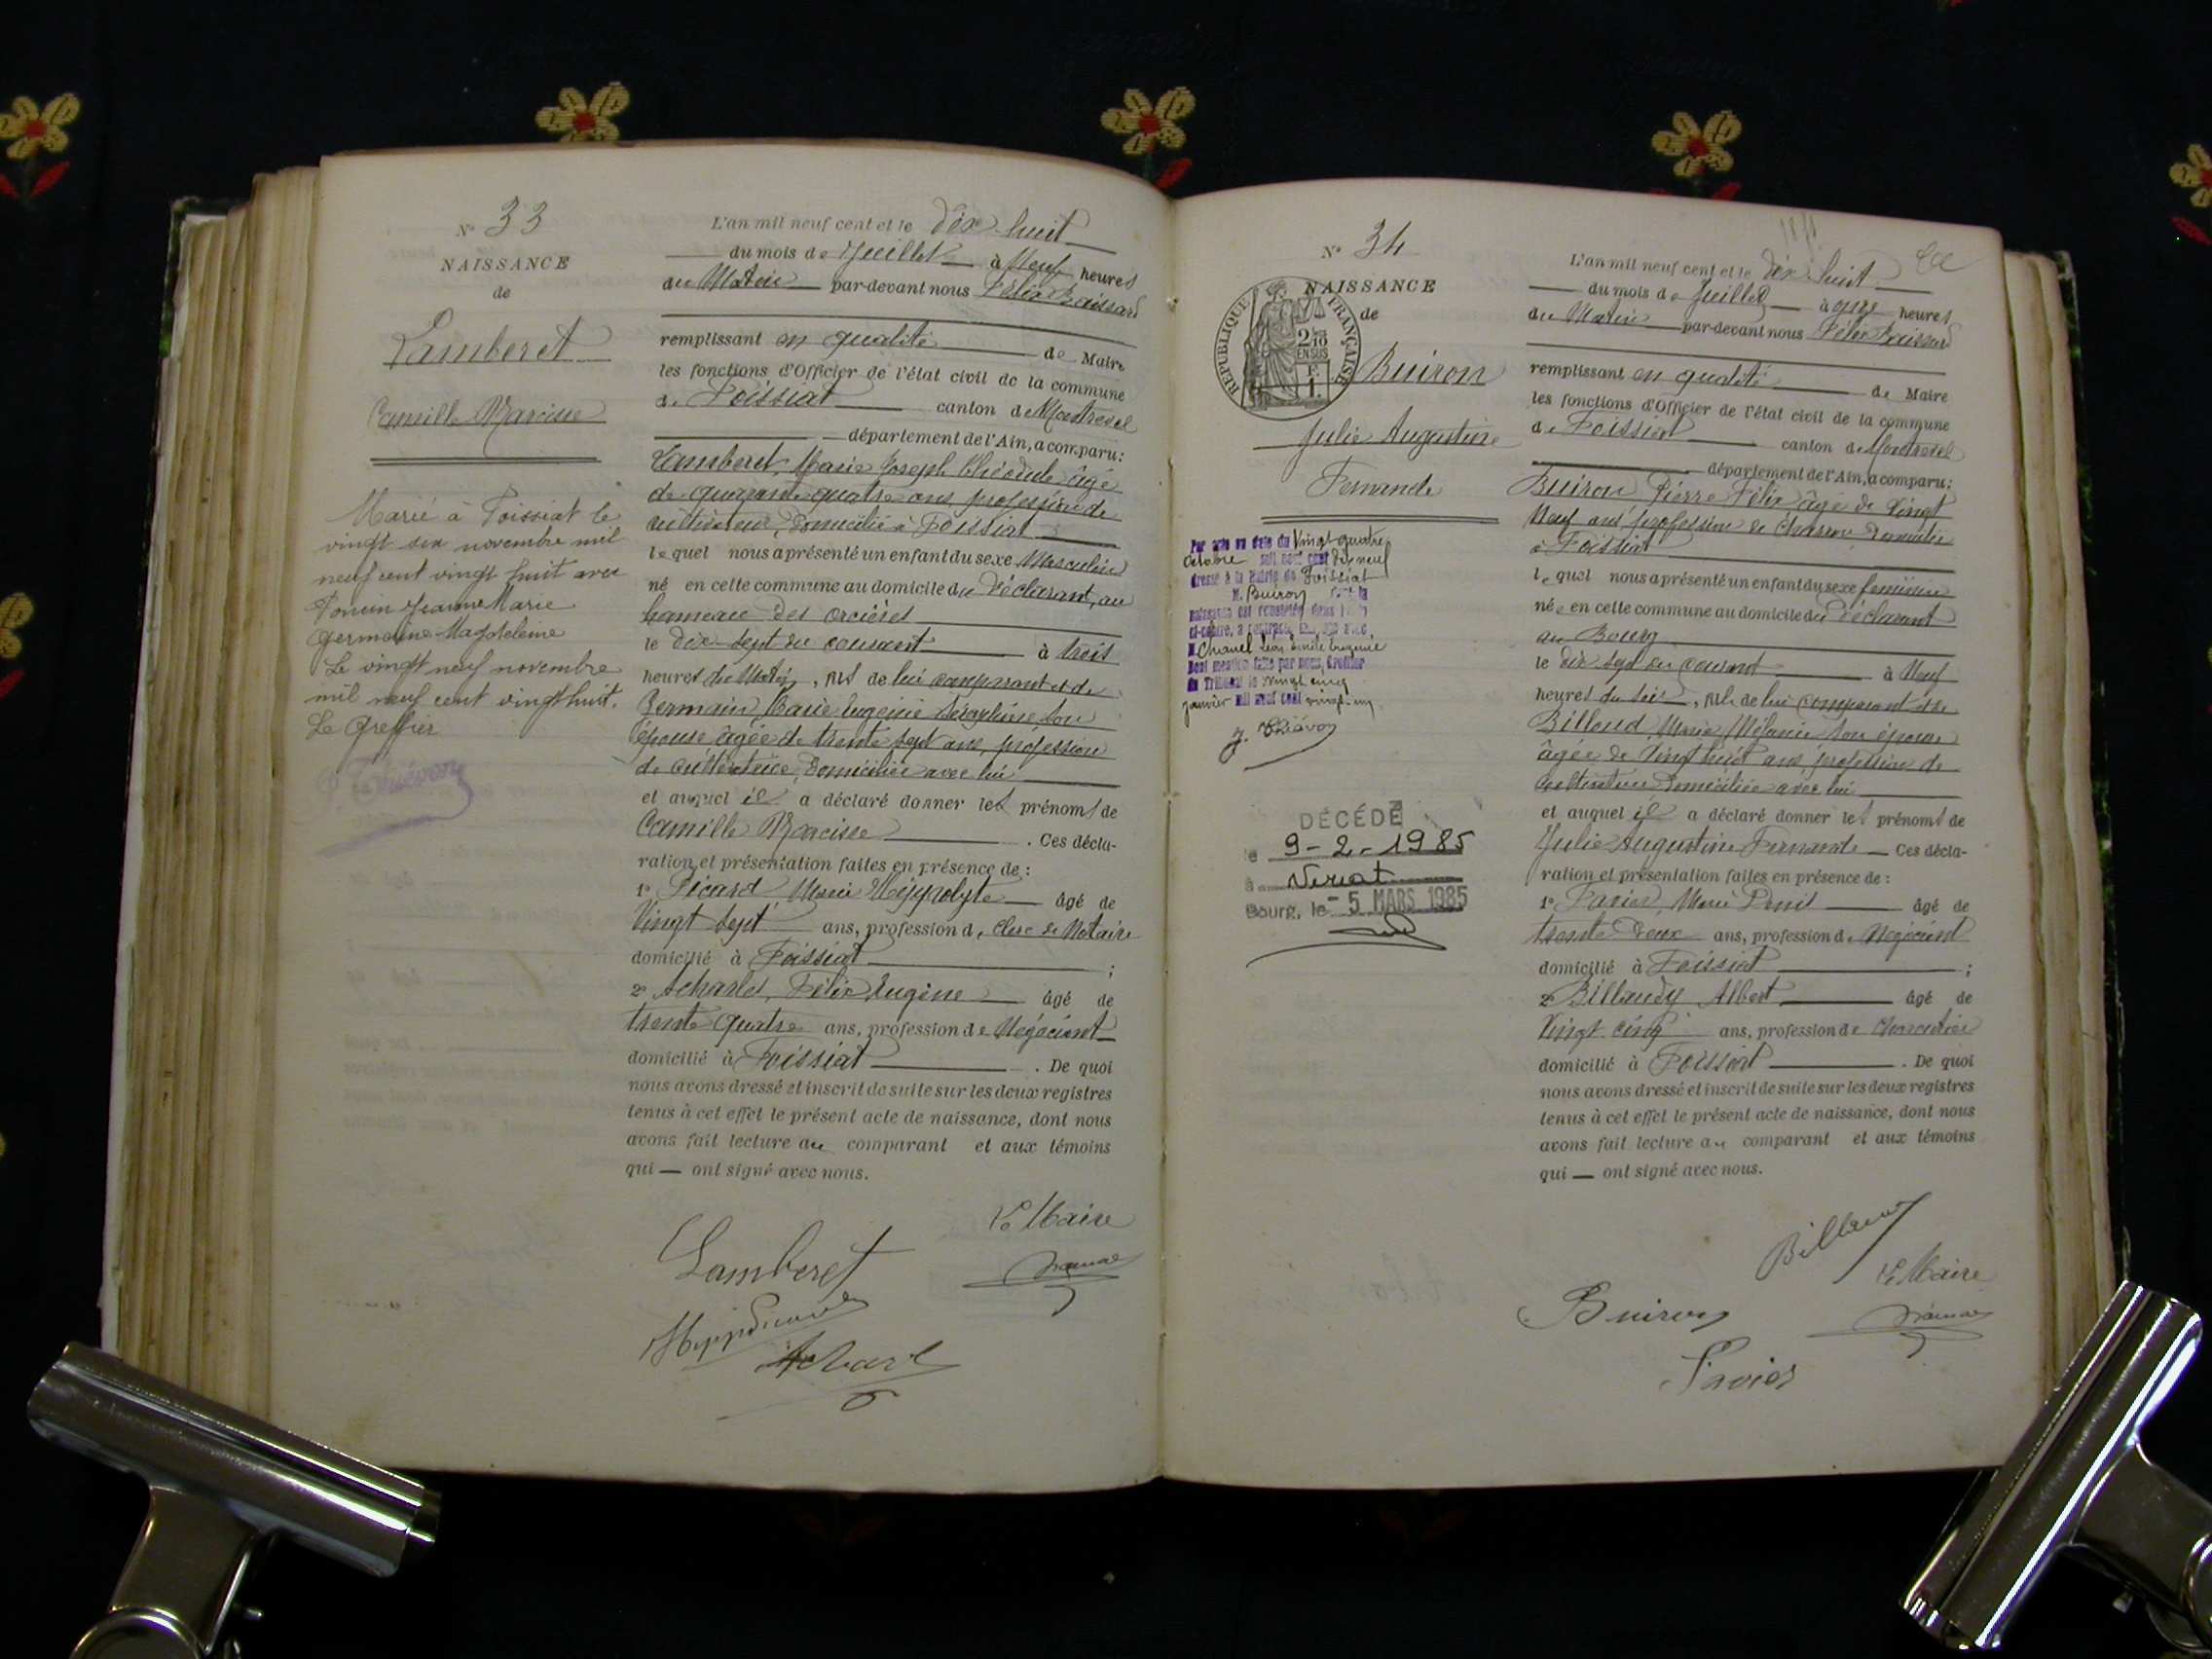 N° 33
NAISSANCE
de
Lamberet
Camille Narcisse
Marié à Foissiat le
vingt six novembre mil
neuf cent vingt huit avec
Poncin Jeanne Marie
Germaine Magdeleine
Le vingt neuf novembre
mil neuf cent vingt huit.
Le Greffier
J. Thiévon
L'an mil neuf cent et le dix-huit
du mois de Juillet à Neuf heures
du Matin par-devant nous Félix
remplissant en qualité de Maire
les fonctions d'Officier de l'état civil de la commune
de Foissiat canton de Montrevel
département de l'Ain, a comparu:
Lamberet, Marie Joseph Théodule âgé
de quarante quatre ans profession de
cultivateur, domicilié à Foissiat
lequel nous a présenté un enfant du sexe Masculin
né en cette commune au domicile du Déclarant, au
hameau des Orcières
le dix-sept du courant à trois
heures du Matin, fils de lui comparant et de
Germain, Marie Eugénie Séraphine son
épouse âgée de trente sept ans, profession
de cultivatrice, domiciliée avec lui
et auquel il a déclaré donner les prénoms de
Camille Narcisse . Ces décla-
ration et présentation faites en présence de :
1° Picard Marie Hyppolyte âgé de
Vingt sept ans, profession de clerc de Notaire
domicilié à Foissiat ;
2° Acharles, Félix Eugène âgé de
trente quatre ans, profession de Négociant
domicilié à Foissiat . De quoi
nous avons dressé et inscrit de suite sur les deux registres
tenus à cet effet le présent acte de naissance, dont nous
avons fait lecture au comparant et aux témoins
qui — ont signé avec nous.
Le Maire
Lamberet
N° 34
NAISSANCE
de
REPUBLIQUE FRANÇAISE
2/10
EN SUS
F.
1.
Buiron
Julie Augustine
Fernande
Par acte en date du Vingt quatre
Octobre mil neuf cent dix neuf
dressé à la Mairie de Foissiat
M. Buiron dont la
naissance est constatée dans l'acte
ci-contre, a contracté mariage avec
M. Chanel Léon Emile Eugène
Dont mention faite par nous, Greffier
du Tribunal le vingt cinq
janvier mil neuf cent vingt-un
J. Thiévon
DÉCÉDÉ
le 9-2-1985
à Viriat
Bourg, le - 5 MARS 1985
L'an mil neuf cent et le dix-huit
du mois de Juillet à onze heures
du Matin par-devant nous Félix
remplissant en qualité de Maire
les fonctions d'Officier de l'état civil de la commune
de Foissiat canton de Montrevel
département de l'Ain, a comparu:
Buiron Pierre Félix âgé de Vingt
Neuf ans profession de Charron domicilié
à Foissiat
lequel nous a présenté un enfant du sexe féminin
née en cette commune au domicile du Déclarant
au Bourg
le dix sept du courant à Neuf
heures du soir, fille de lui comparant et de
Billoud, Marie Mélanie son épouse
âgée de Vingt huit ans profession de
cultivatrice domiciliée avec lui
et auquel il a déclaré donner les prénoms de
Julie Augustine Fernande Ces décla-
ration et présentation faites en présence de :
1° Favier, Marie Denis âgé de
trente deux ans, profession de Négociant
domicilié à Foissiat ;
2° Billaudy Albert âgé de
Vingt cinq ans, profession de charcutier
domicilié à Foissiat . De quoi
nous avons dressé et inscrit de suite sur les deux registres
tenus à cet effet le présent acte de naissance, dont nous
avons fait lecture au comparant et aux témoins
qui — ont signé avec nous.
Le Maire
Buiron
Favier